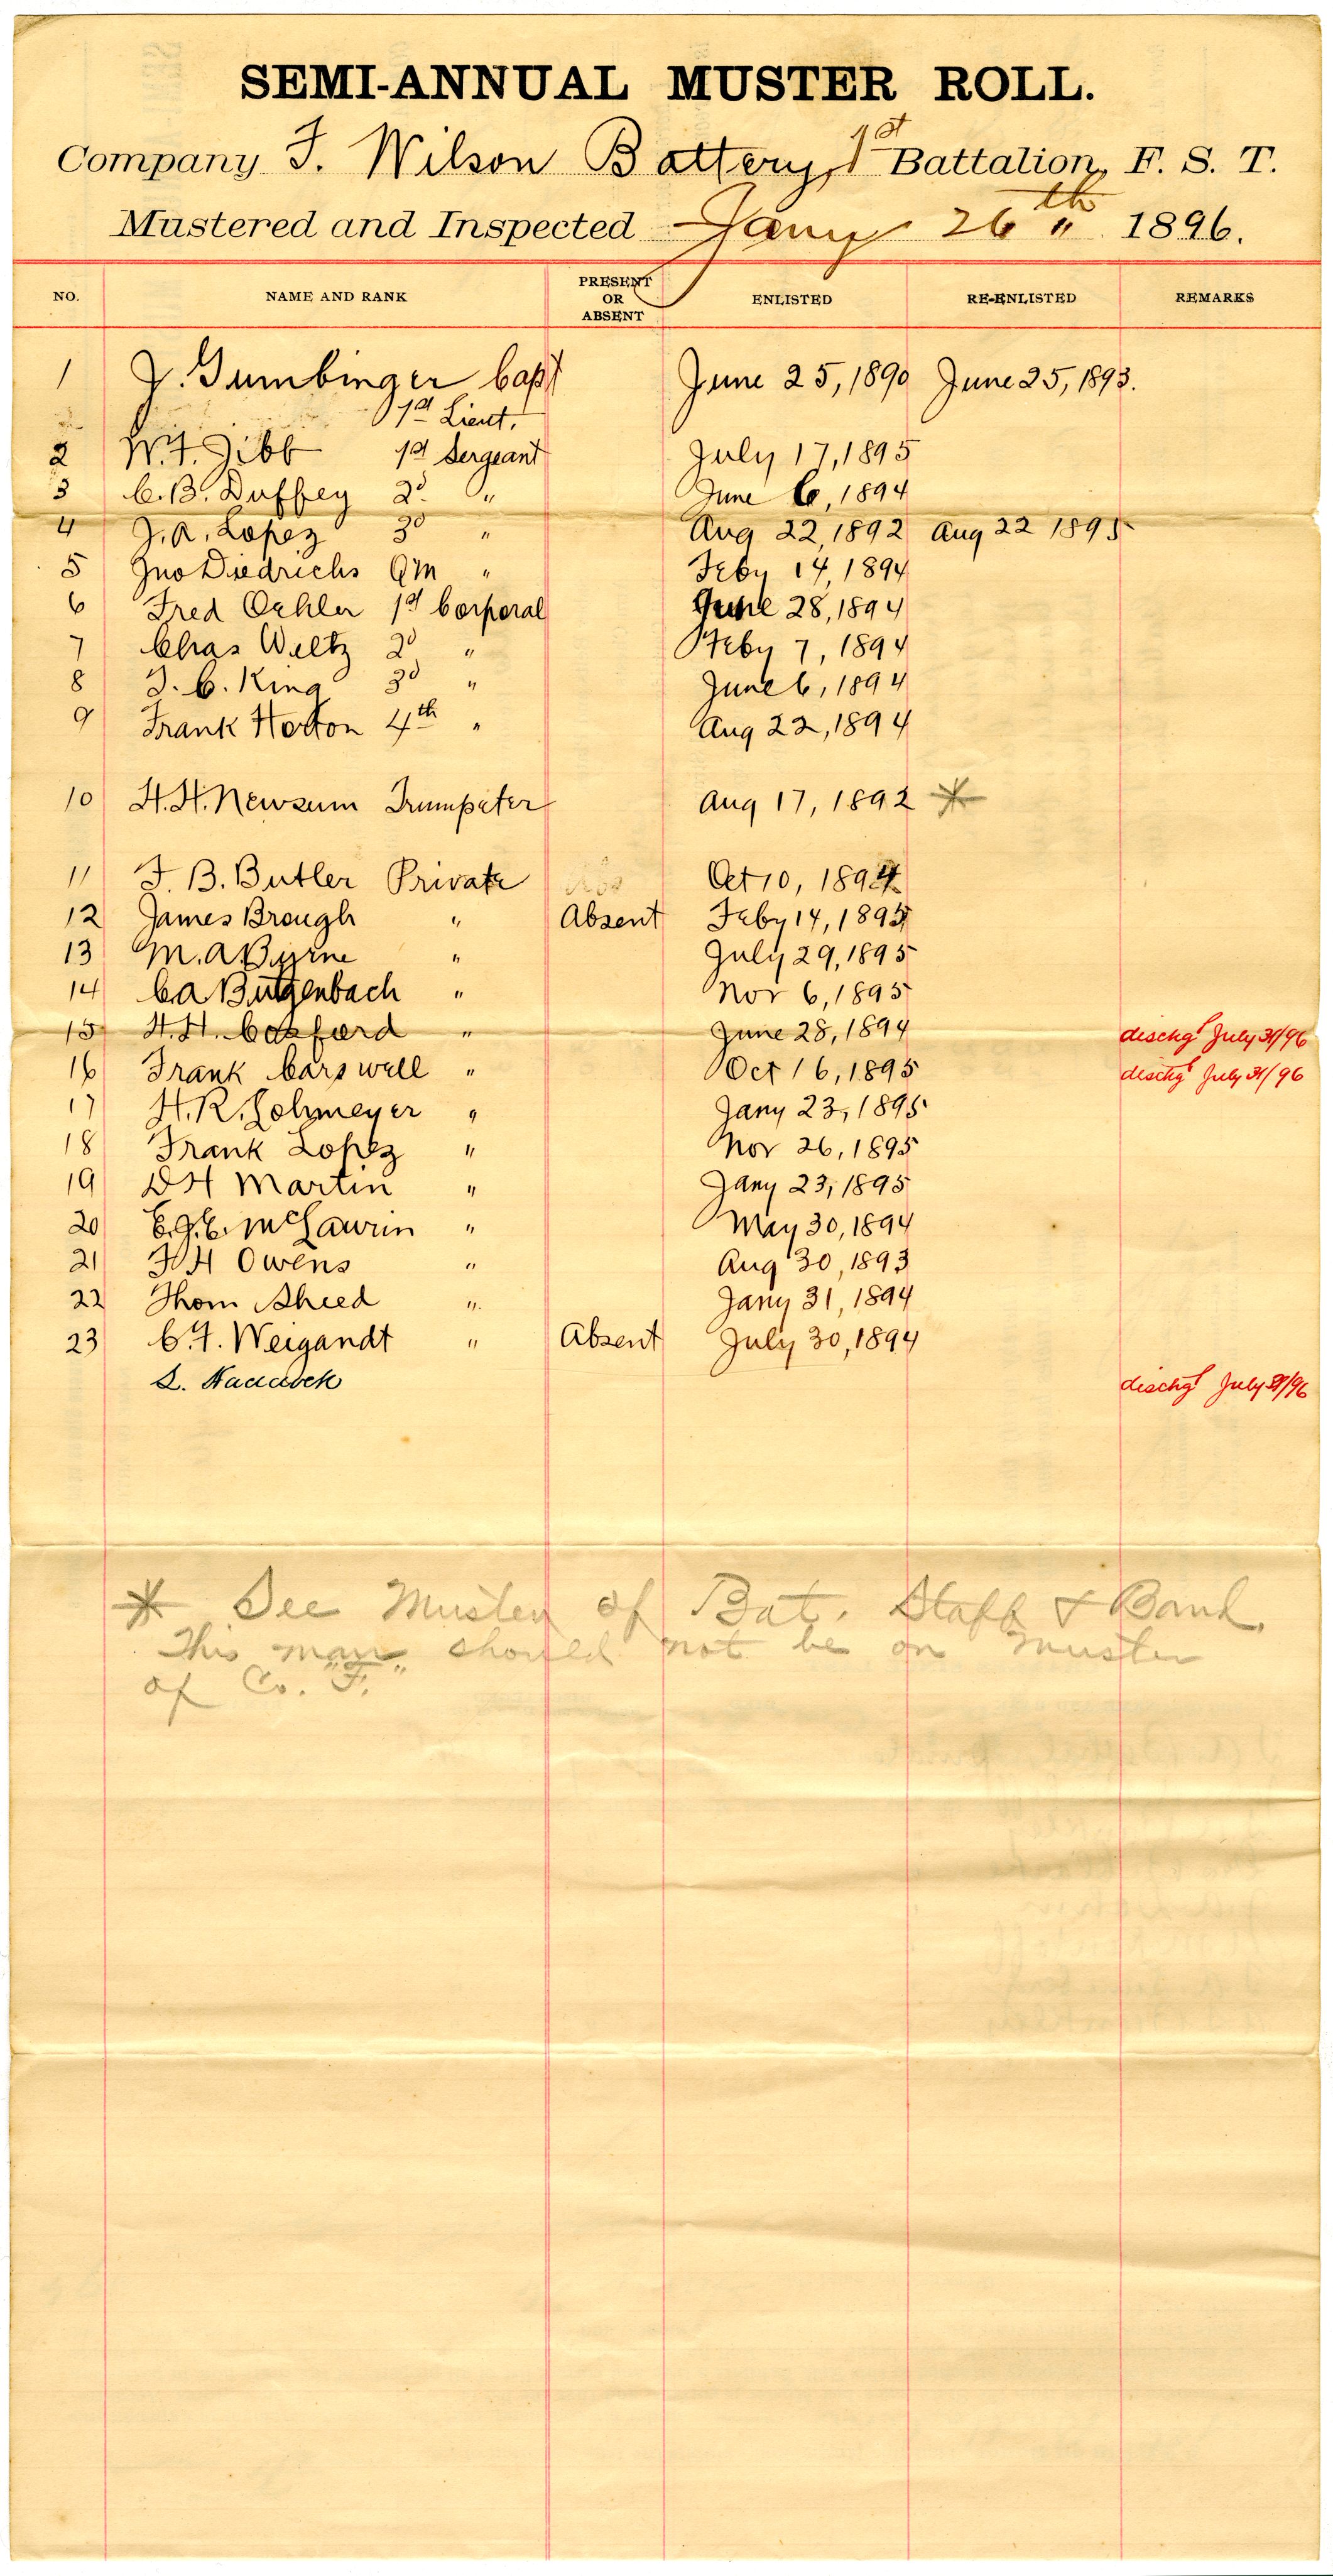 SEMI-ANNUAL MUSTER ROLL.
Company F. Wilson Battery, 1st Battalion, F. S. T.
Mustered and Inspected Jany 26th " 1896.
NO. NAME AND RANK PRESENT OR ABSENT ENLISTED RE-ENLISTED REMARKS
1 J. Gumbinger Capt June 25, 1890 June 25, 1893.
1st Lieut.
2 W. F. Gibb 1st Sergeant July 17, 1895
3 C. B. Duffey 2d " June 6, 1894
4 J. A. Lopez 3d " Aug 22, 1892 Aug 22 1895
5 Jno Diedrichs QM " Feby 14, 1894
6 Fred Oehler 1st Corporal June 28, 1894
7 Chas Weltz 2d " Feby 7, 1894
8 J. C. King 3d " June 6, 1894
9 Frank Horton 4th " Aug 22, 1894
10 H. H. Newsum Trumpeter Aug 17, 1892 *
11 F. B. Butler Private Oct 10, 1894
12 James Brough " Absent Feby 14, 1895
13 M. A Byrne " July 29, 1895
14 C A Butgenbach " Nov 6, 1895
15 H. H. " June 28, 1894 dischgd July 31/96
16 Frank Carswell " Oct 16, 1895 dischgd July 31/96
17 H. R. Lohmeyer " Jany 23, 1895
18 Frank Lopez " Nov 26, 1895
19 D H Martin " Jany 23, 1895
20 E. J. E. McLaurin " May 30, 1894
21 F H Owens " Aug 30, 1893
22 Thom Shied " Jany 31, 1894
23 C. F. Weigandt " Absent July 30, 1894
L. Haddock dischgd July 31/96
* See Muster of Bat. Staff & Band.
This man should not be on muster
of Co. "F."